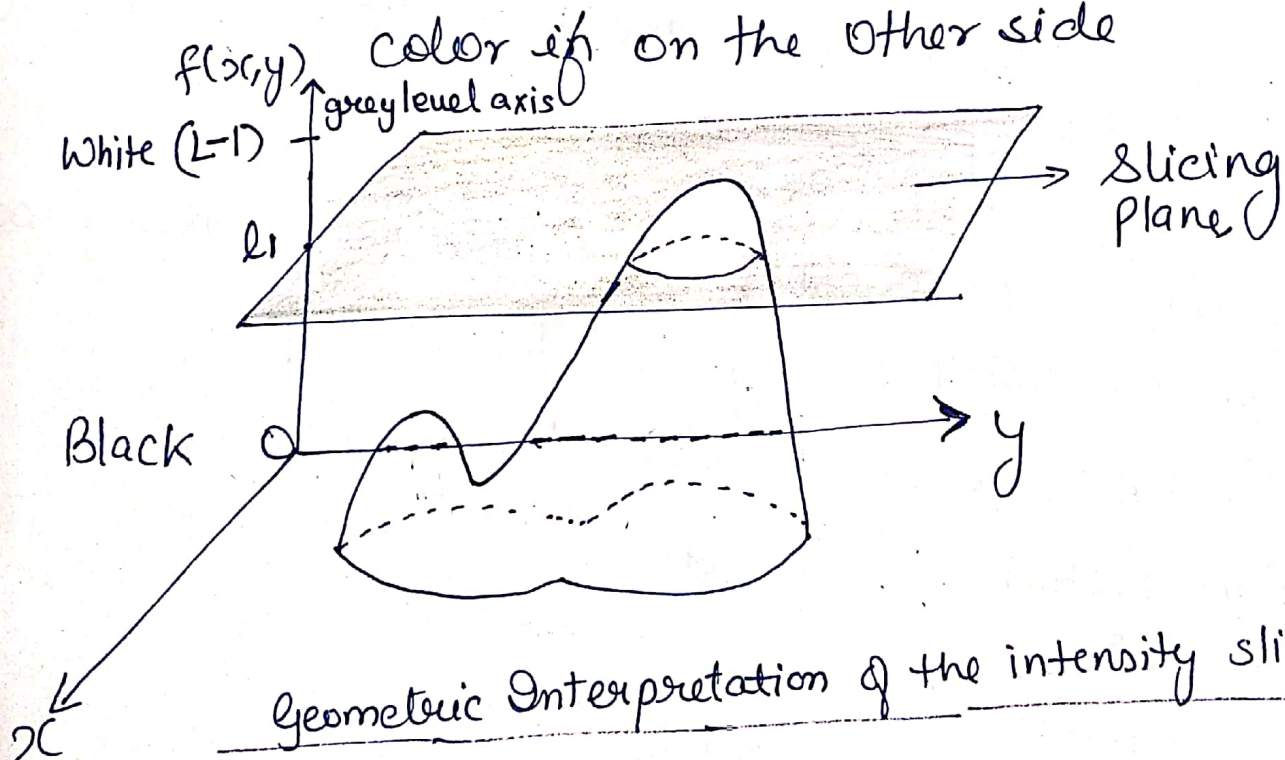 color if on the other side
f(x,y)
grey level axis
White (L-1)
Slicing
Plane
l1
Black O
y
x
Geometric Interpretation of the intensity sli